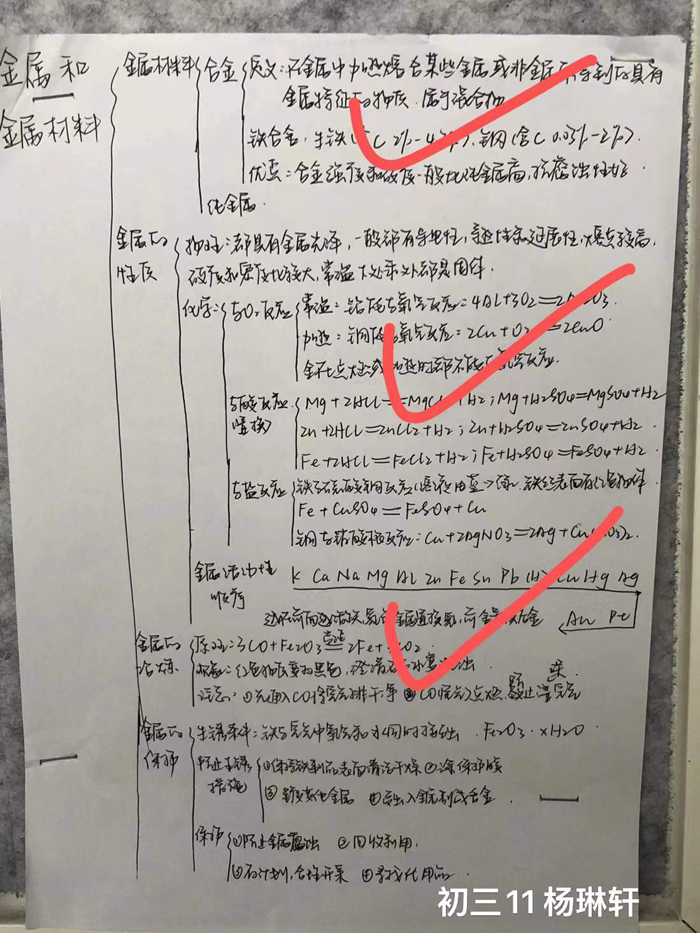 金属和
金属材料
金属材料 合金 定义：在金属中加热熔合某些金属或非金属 得到的具有
金属特征的物质．属于混合物
铁合金：生铁(含C 2%-4.3%)，钢(含C 0.03%-2%)
优点：合金强度和硬度一般比纯金属高，抗腐蚀性好
纯金属
金属的
性质
物理：都具有金属光泽，一般都有导电性，导热性和延展性，熔点较高，
硬度和密度比较大，常温下除汞外都是固体．
化学：与O2反应 常温：铝在与氧气反应：4Al+3O2=2Al2O3
加热：铜在与氧气反应：2Cu+O2=2CuO
金在点燃或加热时都不能与氧气反应．
与酸反应
置换
Mg+2HCl=MgCl2+H2；Mg+H2SO4=MgSO4+H2
Zn+2HCl=ZnCl2+H2；Zn+H2SO4=ZnSO4+H2
Fe+2HCl=FeCl2+H2；Fe+H2SO4=FeSO4+H2
与盐反应 铁与硫酸铜反应(溶液由蓝→绿，铁丝表面有红色物质
Fe+CuSO4=FeSO4+Cu
铜与硝酸银反应：Cu+2AgNO3=2Ag+Cu(NO3)2
金属活动性
顺序
K Ca Na Mg Al Zn Fe Sn Pb (H) Cu Hg Ag
Au Pt
金属的
冶炼
原理：3CO+Fe2O3 高温 2Fe+3CO2
现象：红色物质变为黑色，澄清石灰水变浑浊
注意：①先通入CO将空气排干净 ②CO 点燃 防止 空气
污染
金属的
保护
生锈条件：铁与空气中氧气和水同时接触．Fe2O3·xH2O
防止生锈
措施
①保持铁制品表面清洁干燥 ②涂保护膜
③镀其他金属 ④ 入金属制成合金
保护 ①防止金属腐蚀 ②回收利用
③有计划，合理开采 ④寻找代用品
初三11杨琳轩